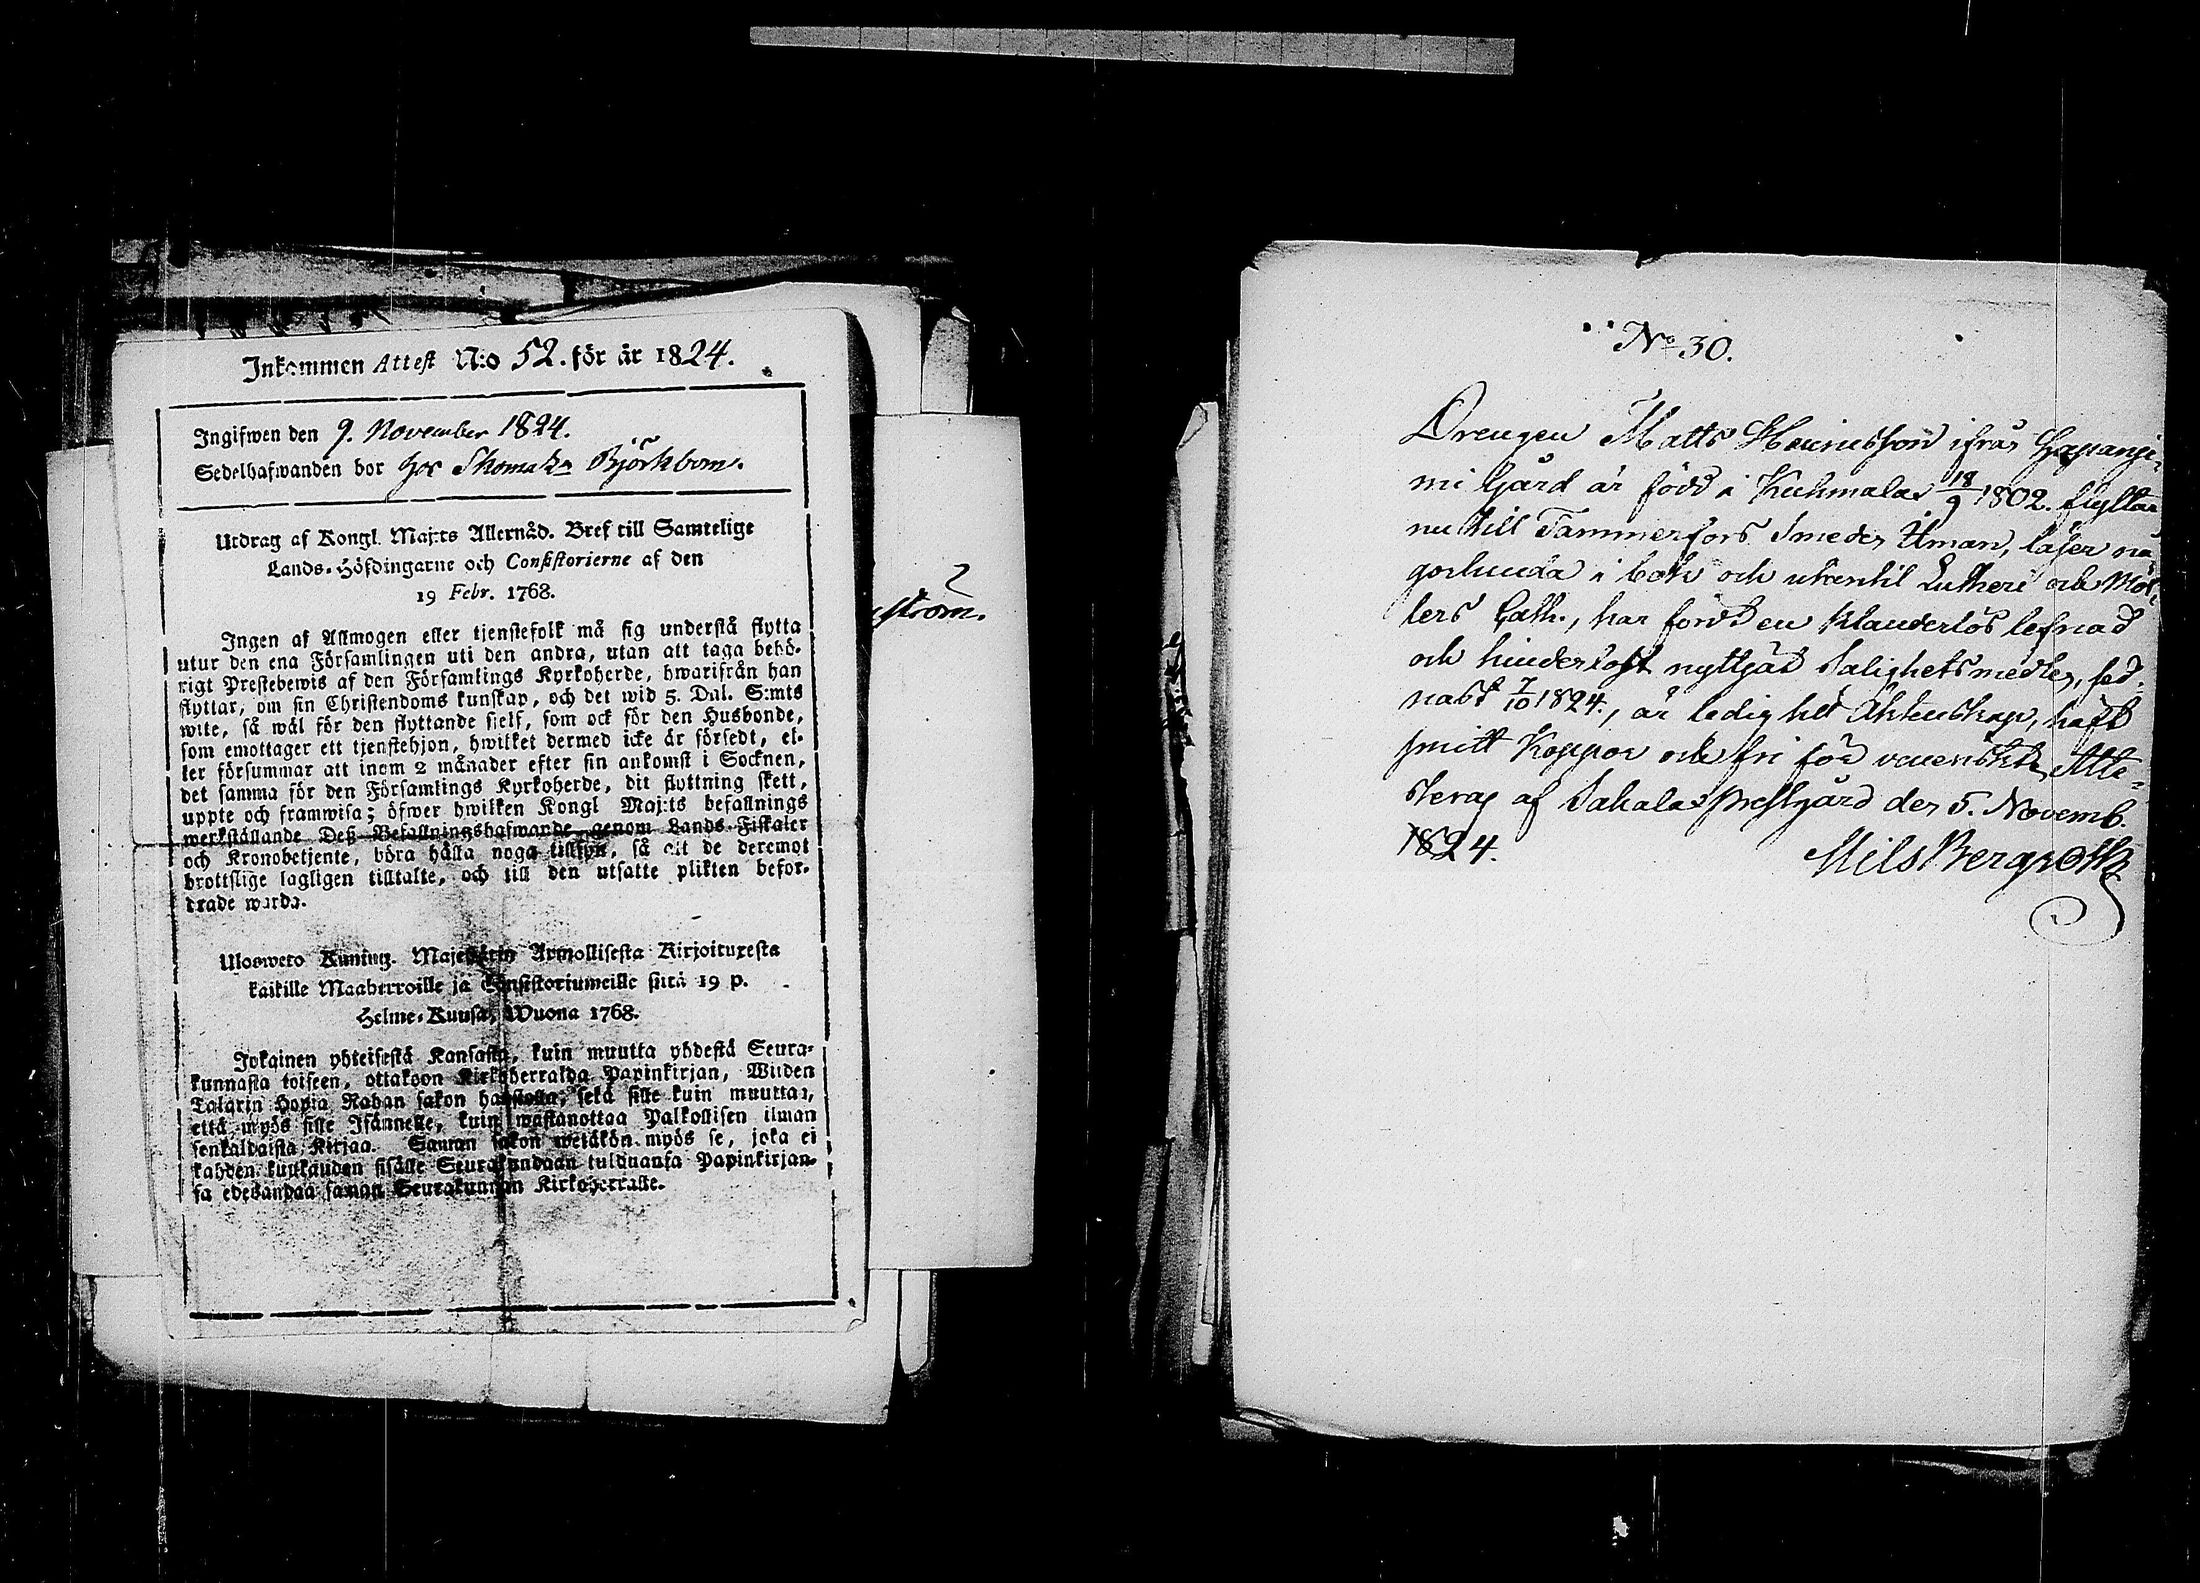 Inkommen Attest N:o 52. för år 1824.
Ingifwen den 9. November 1824.
Sedelhafwanden bor hos Skomak. Björkbom.
Utdrag af Kongl. Maj:ts Allernåd. Bref till Samtelige
Lands-Höfdingarne och Consistorierne af den
19 Febr. 1768.
Ingen af Allmogen eller tjenstefolk må sig understå flytta
utur den ena Församlingen uti den andra, utan att taga behö-
rigt Prestebewis af den Församlings Kyrkoherde, hwarifrån han
flyttar, om sin Christendoms kunskap, och det wid 5. Dal. S:mts
wite, så wäl för den flyttande sjelf, som ock för den Husbonde,
som emottager ett tjenstehjon, hwilket dermed icke är försedt, el-
ler försummar att inom 2 månader efter sin ankomst i Socknen,
det samma för den Församlings Kyrkoherde, dit flyttning skett,
uppte och framwisa; öfwer hwilken Kongl Maj:ts befallnings
werkställande Deß Befallningshafwande genom Lands-Fiskaler
och Kronobetjente, böra hålla noga tillsyn, så att de deremot
brottslige lagligen tilltalte, och till den utsatte plikten befor-
drade warda.
Ulosweto Kuning. Majestätin Armollisesta Kirjoituxesta
kaikille Maaherroille ja Consistoriumeille siitä 19 p.
Helme-Kuusa, Wuona 1768.
Jokainen yhteisestä Kansasta, kuin muutta yhdestä Seura-
kunnasta toiseen, ottakoon Kirkoherralda Papinkirjan, Wiiden
Talarin Hopia Rahan sakon haastolla, sekä sille kuin muuttaa,
että myös sille Isännelle, kuin wastanottaa Palkollisen ilman
senkaldaista Kirjaa. Saman sakon wetäkön myös se, joka ei
kahden kuukauden sisälle Seurakundaan tulduansa Papinkirjan-
sa edesandaa saman Seurakunnan Kirkoherralle.
ström.
No 30.
Drengen Matts Henricsson ifrån Haapanje-
mi Gård är född i Kuhmalax 18/9 1802. flyttar
nu till Tammerfors Smeden Uman, läser nå-
gorlunda i bok och utantil Lutheri och Möl-
lers Cath., har fördt en klanderlös lefnad
och hinderlöst nyttjat Salighetsmedlen, sed-
nast 7/10 1824., är ledig till Äktenskap, haft
smitt Koppor och fri för venerisk. Atte-
steras af Sahalax Prestgård den 5. Novemb.
1824.
Nils Bergroth